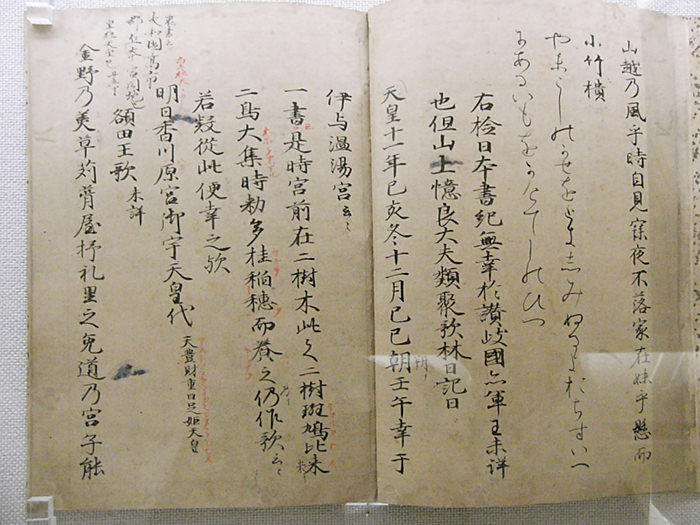 山越乃風乎時自見寐夜不落家在妹乎懸而
小竹樻
やまこしのかせをときしみぬるよおちすいへ
にあるいもをかけてしのひつ
右検日本書紀無幸於讃岐國亦軍王未詳
也但山上憶良大夫類聚歌林曰記曰
天皇十一年己亥冬十二月己巳朔壬午幸于
伊与温湯宮云々
一書是時宮前在二樹木此之二樹斑鳩比米
二鳥大集時勅多挂稲穂而養之仍作歌云々
若疑従此便幸之歟
明日香川原宮御宇天皇代 天豊財重日足姫天皇
大和國高市
額田王歌 未詳
金野乃美草苅葺屋杼礼里之兎道乃宮子能